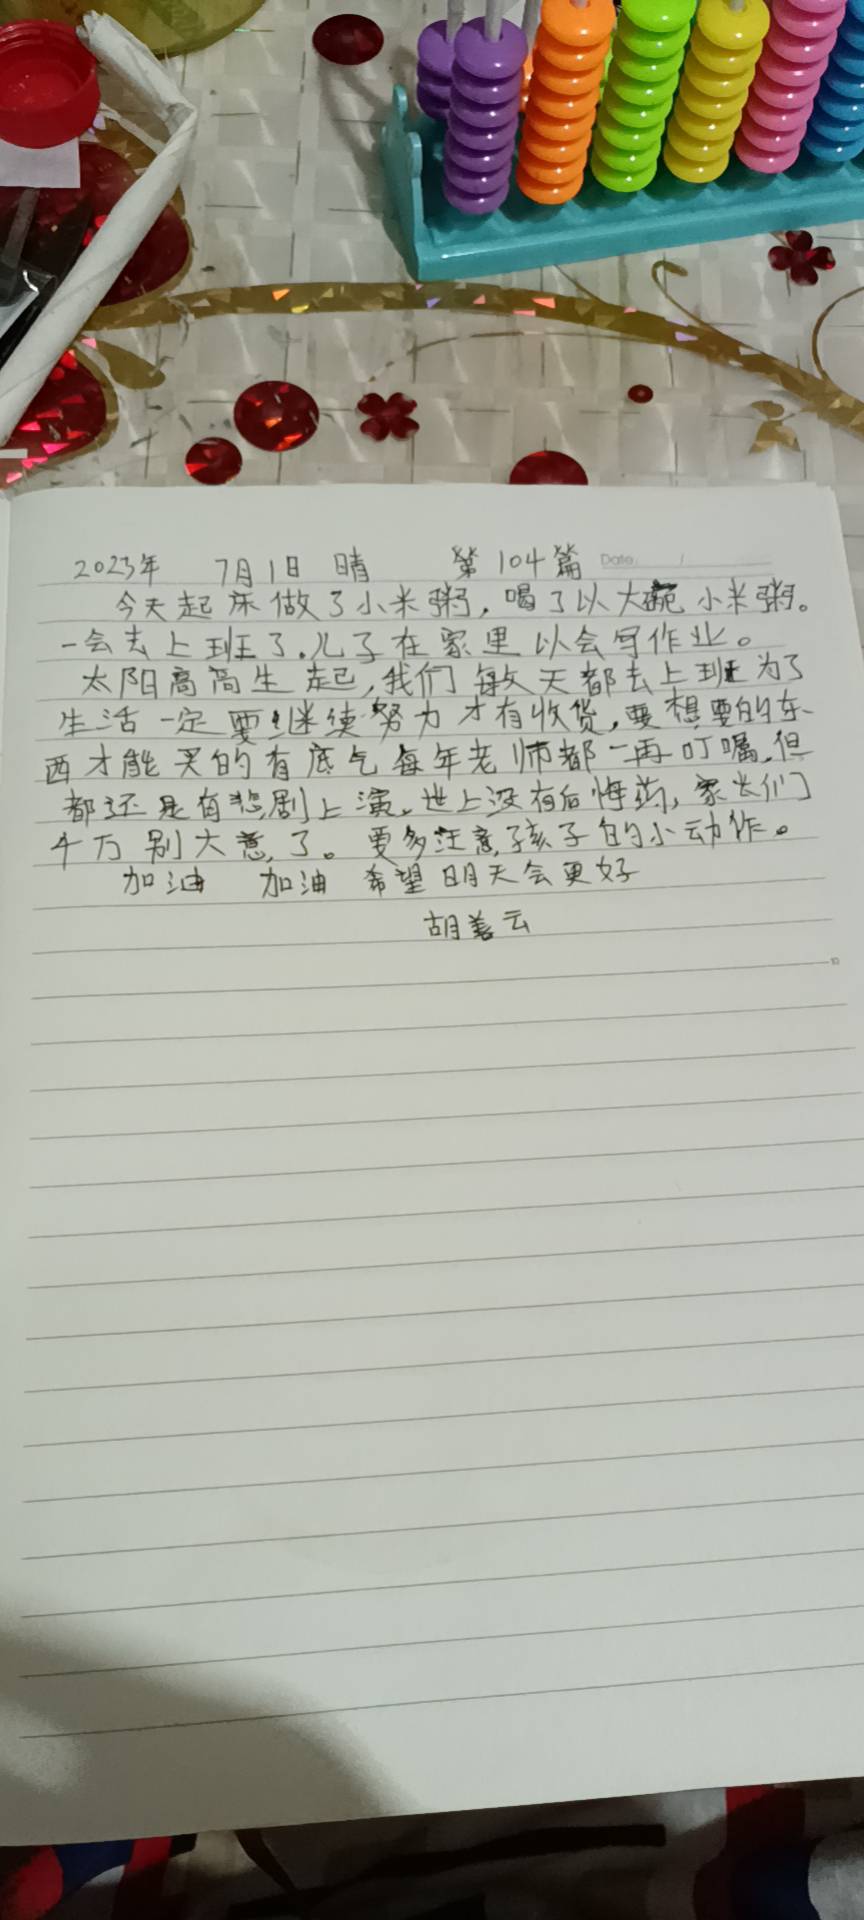 2023年 7月1日 晴 第104篇 Date: /
今天起床做了小米粥，喝了以大碗小米粥。
一会去上班了.儿子在家里以会写作业。
太阳高高生起,我们每天都去上班为了
生活一定要继续努力才有收货,要想要的东
西才能买的有底气每年老师都一再叮嘱.但
都还是有悲剧上演.世上没有后悔药,家长们
千万别大意了。要多注意孩子的小动作。
加油 加油 希望明天会更好
胡善云